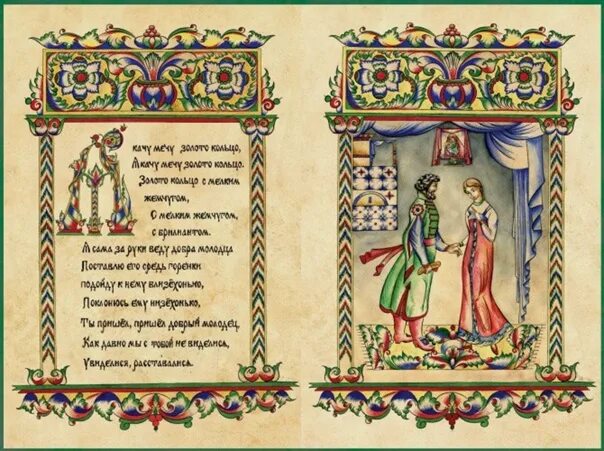 Я качу мечу золото кольцо,
Я качу мечу золото кольцо.
Золото кольцо с мелким
жемчугом,
С мелким жемчугом,
с брилиантом.
Я сама за руки веду добра молодца
Поставлю его средь горенки
подойду к нему близёхонько,
Поклонюсь ему низёхонько,
Ты пришёл, пришёл добрый молодец.
Как давно мы с тобой не виделися,
Увиделися, расставалися.